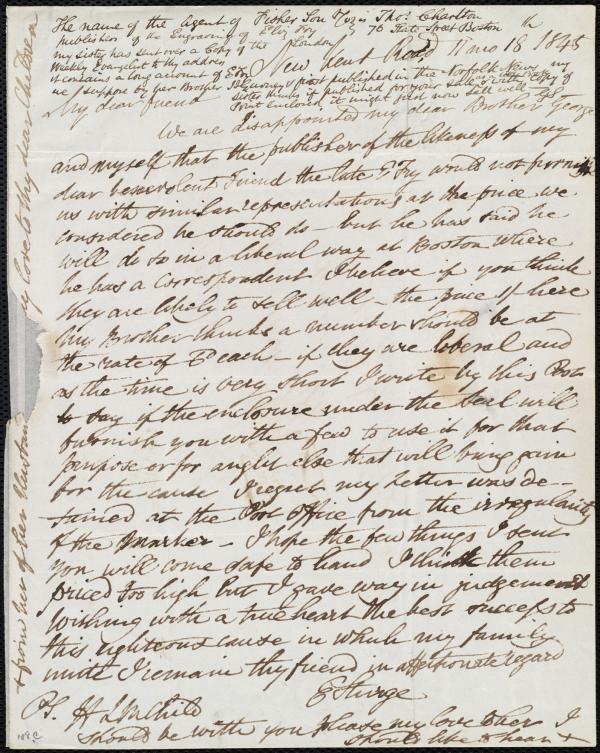 The name of the Agent of Fisher Son & Co is Thos. Charlton
publisher of the Engraving of Eliz Fry 76 State Street Boston
my sister has sent over a Copy of the London
Weekly to thy address
it contains a long account of E Fry
we suppose by her Brother J J Gurney & post published in the Norfolk News my
sister thinks if published for your Sale with a Copy of
Print enclosed it might sell well
New Kent Road 11 mo 18th 1845
My dear friend
We are disappointed my dear Brother George
and myself that the publisher of the likeness of my
dear benevolent Friend the late E Fry would not furnish
us with similar representations at the price we
considered he should do – but he has said he
will do so in a liberal way at Boston where
he has a Correspondent I believe if you think
they are likely to sell well – the price if here
my Brother thinks a number should be at
the rate of each – if they are liberal and
as the time is very short I write by this Post
to say if the enclosure under the Seal will
furnish you with a few to use it for that
purpose or for anght else that will bring gain
for the cause I regret my letter was de-
tained at the Post Office from the irregularity
of the Marker – I hope the few things I sent
you will come safe to hand I think them
priced too high but I gave way in judgement
Wishing with a true heart the best success to
this righteous cause in which my family
unite I remain thy friend in affectionate regard
E Sturge
PS. If L M Child
should be with you please my love to her I
should like to hear
from her of her
my love to thy dear children